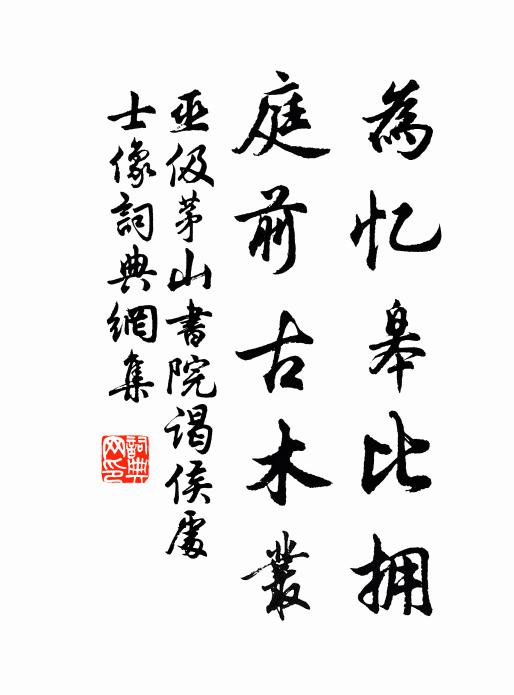 為忆皋比拥
庭前古木叢
巫伋茅山書院谒侯處
士像詞典網集
詞典网印